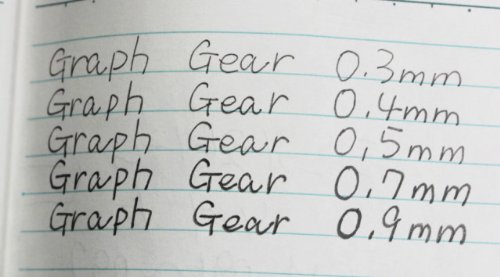 Graph Gear 0.3mm
Graph Gear 0.4mm
Graph Gear 0,5mm
Graph Gear 0.7mm
Graph Gear 0.9mm